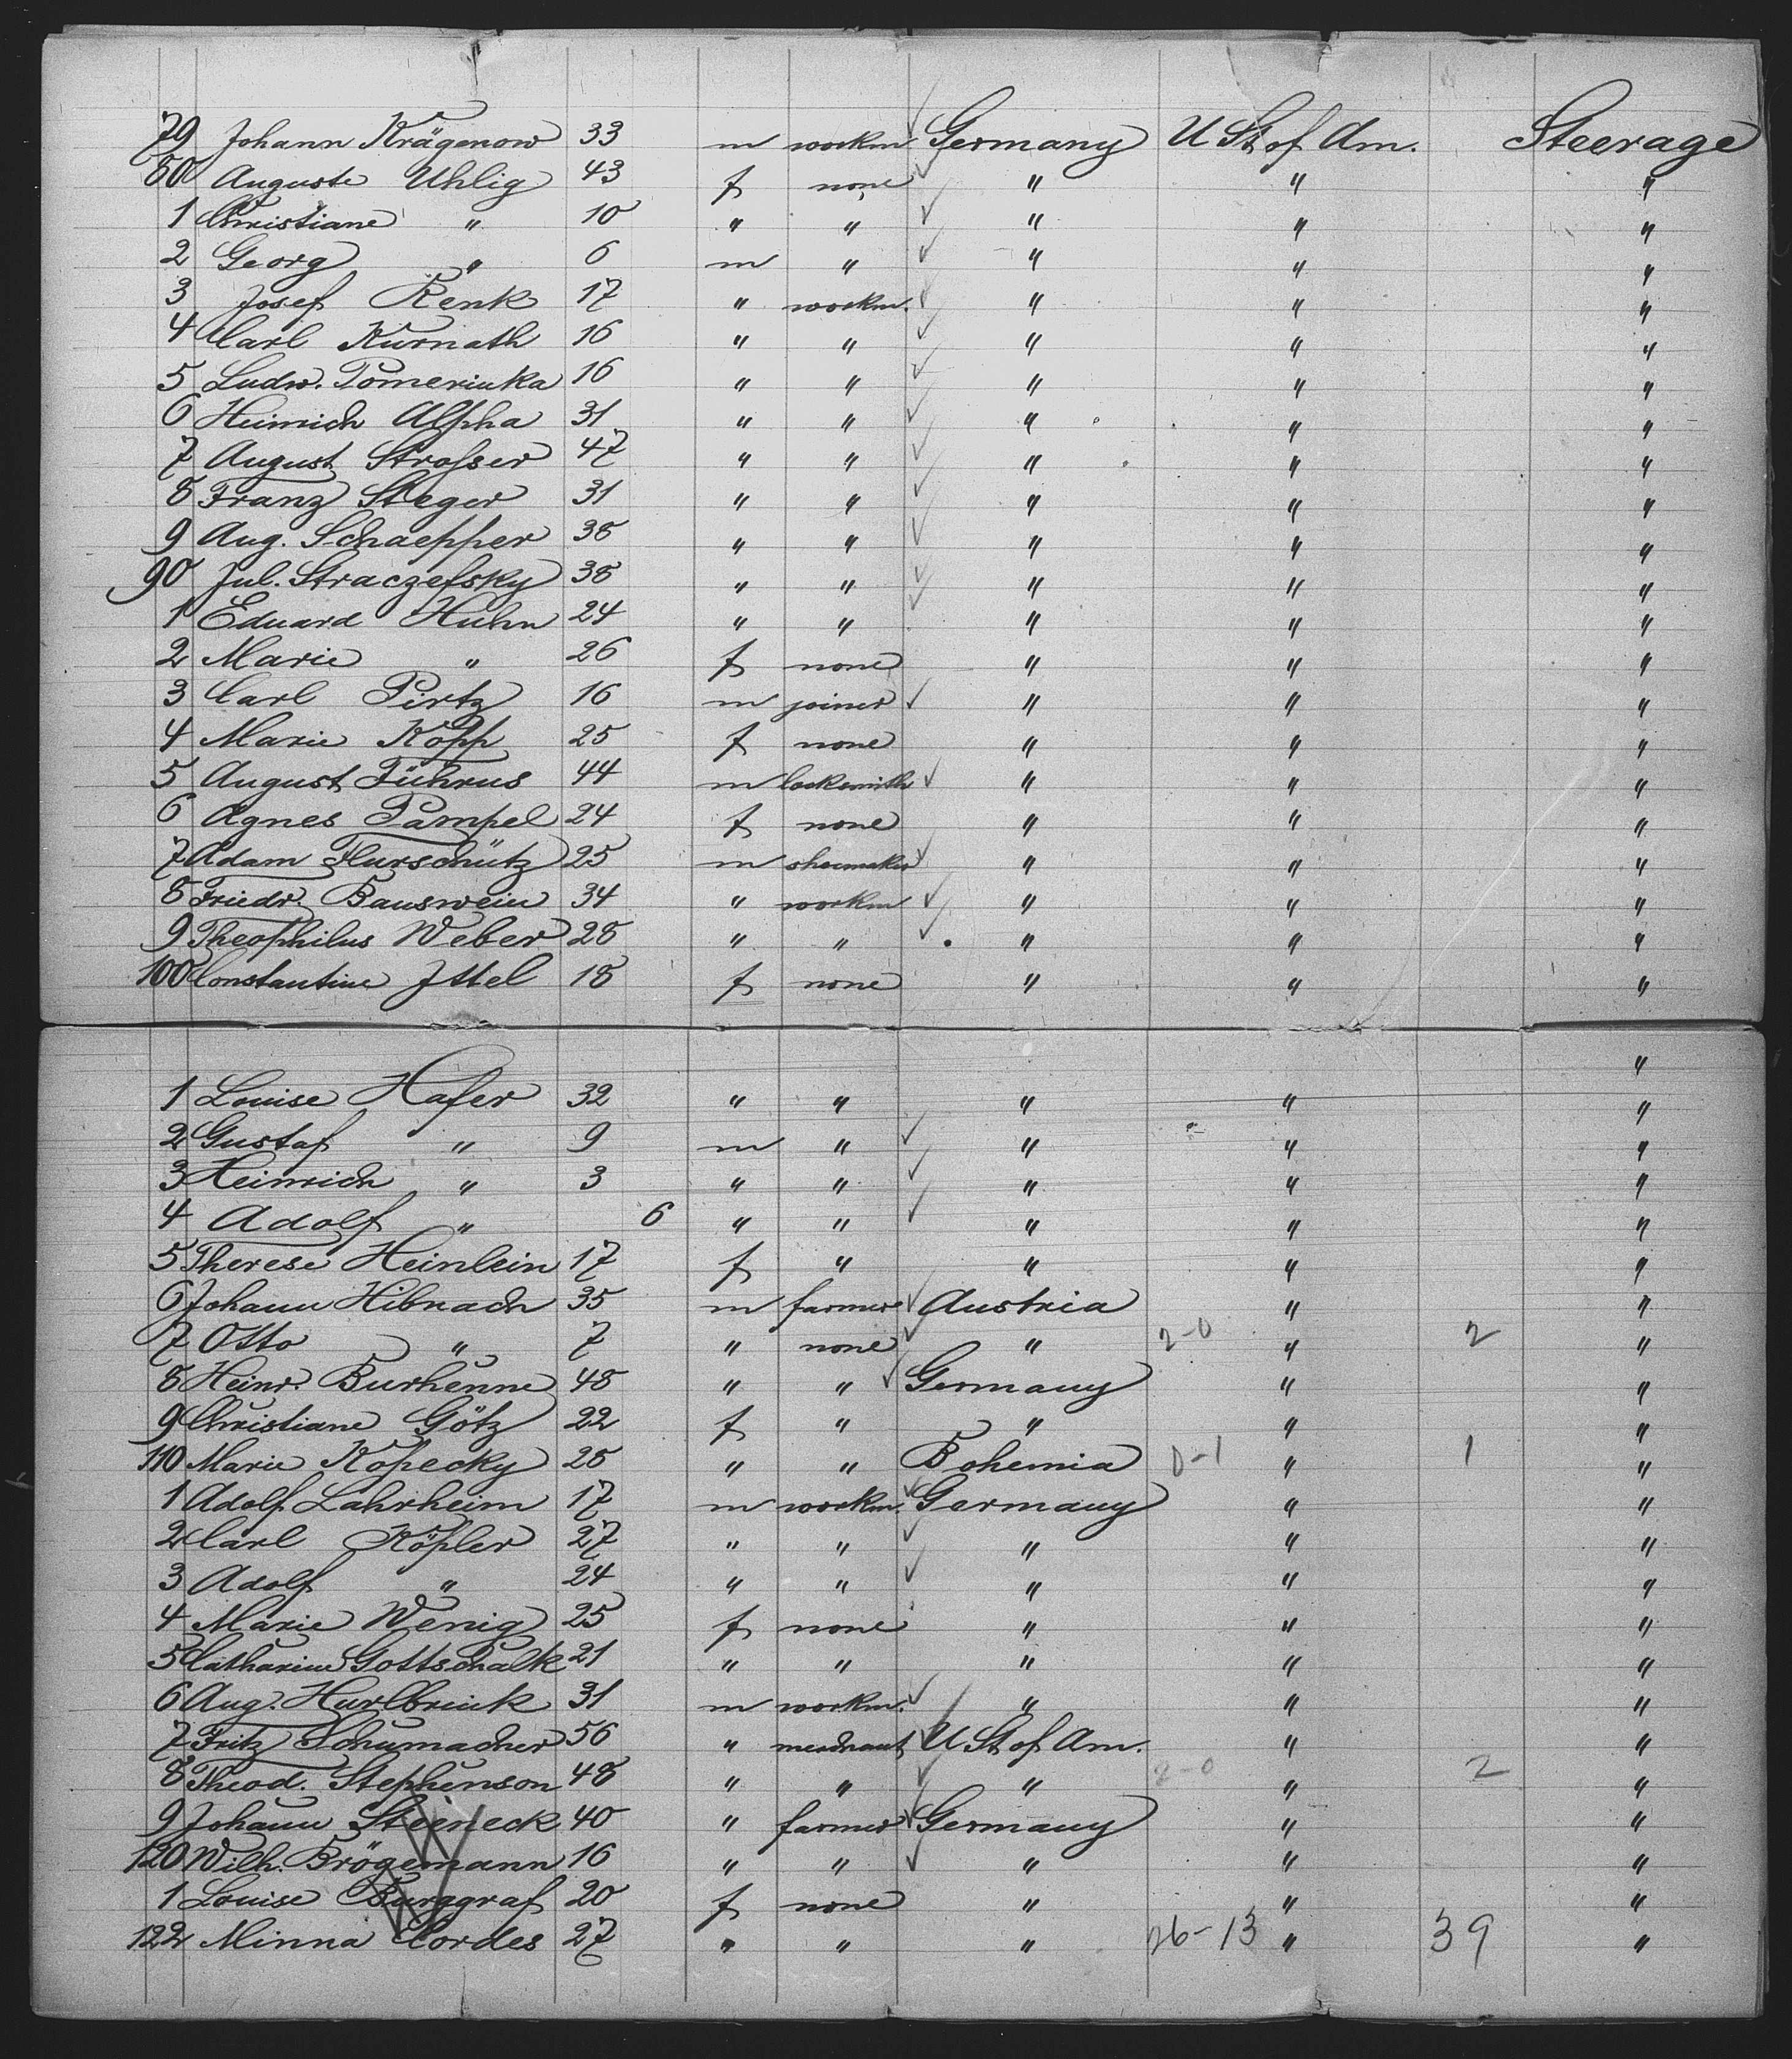 79 Johann Krägenow 33 m workm Germany U St of Am. Steerage
80 Auguste Uhlig 43 f none " " "
1 Christiane " 10 " " " " "
2 Georg " 6 m " " " "
3 Josef Renk 17 " workm. " " "
4 Carl Kurnath 16 " " " " "
5 Ludw. Pomerinka 16 " " " " "
6 Heinrich Alpha 31 " " " " "
7 August Strosser 47 " " " " "
8 Franz Steger 31 " " " " "
9 Aug. Schaepper 38 " " " " "
90 Jul. Straczefsky 38 " " " " "
1 Eduard Huhn 24 " " " " "
2 Marie " 26 f none " " "
3 Carl Pirtz 16 m joiner " " "
4 Marie Kopp 25 f none " " "
5 August Führus 44 m locksmith " " "
6 Agnes Pampel 24 f none " " "
7 Adam Flurschütz 25 m shoemaker " " "
8 Friedr. Bauswein 34 " workm " " "
9 Theophilus Weber 28 " " " " "
100 Constantine Ittel 18 f none " " "
"
1 Louise Hafer 32 " " " " "
2 Gustaf " 9 m " " " "
3 Heinrich " 3 " " " " "
4 Adolf " 6 " " " " "
5 Therese Heinlein 17 f " " " "
6 Johann Hibnach 35 m farmer Austria " "
7 Otto " 7 " none " 2-0 " 2 "
8 Heinr. Burhenne 48 " " Germany " "
9 Christiane Götz 22 f " " " "
110 Marie Kopecky 28 " " Bohemia 0-1 " 1 "
1 Adolf Lahrheim 17 m workm. Germany " "
2 Carl Köpler 27 " " " " "
3 Adolf " 24 " " " " "
4 Marie Wenig 25 f none " " "
5 Catharine Gottschalk 21 " " " " "
6 Aug. Hurlbrink 31 m workm. " " "
7 Fritz Schumacher 56 " merchant U St of Am. " "
8 Theod. Stephenson 48 " " " 2-0 " 2 "
9 Johann Steeneck 40 " farmer Germany " "
120 Wilh. Brögemann 16 " " " " "
1 Louise Burggraf 20 f none " " "
122 Minna Cordes 27 " " " 26-13 " 39 "